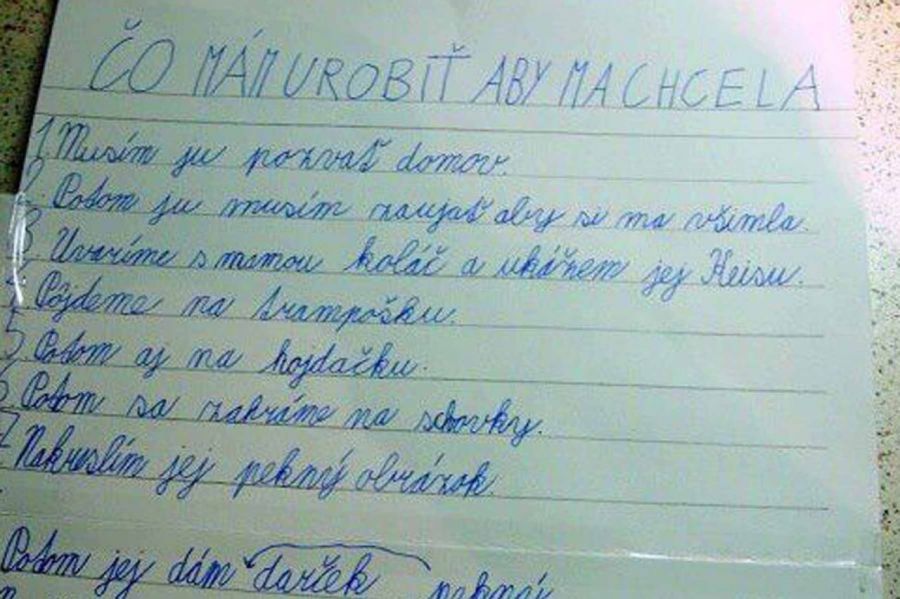 ČO MÁM UROBIŤ ABY MA CHCELA
1 Musím ju pozvať domov.
2. Potom ju musím zaujať aby si ma všimla.
3 Uvaríme s mamou koláč a ukážem jej Keisu.
4 Pôjdeme na trampošku.
5 Potom aj na hojdačku.
6 Potom sa zahráme na schovky.
7 Nakreslím jej pekný obrázok.
Potom jej dám darček